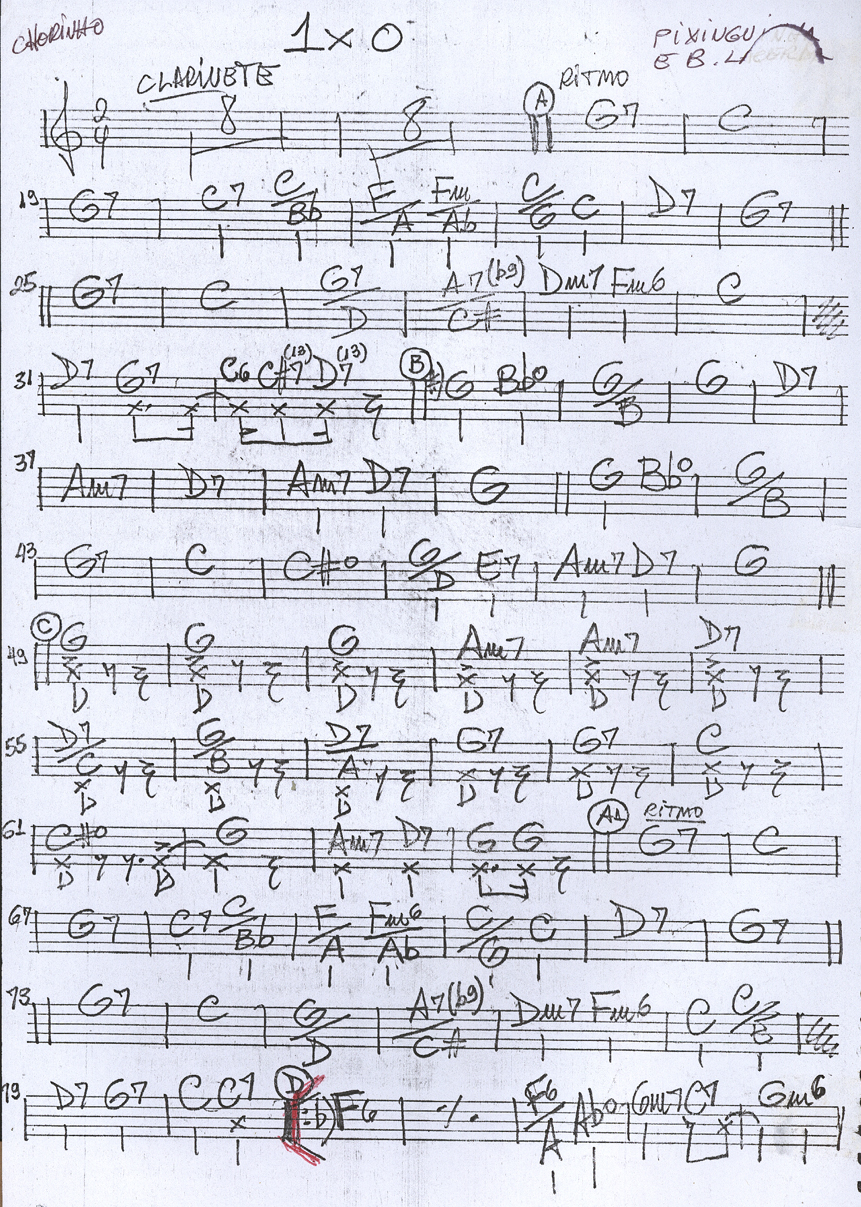 CHORINHO 1x0 PIXINGUINHA
E B. LACERDA
CLARINETE RITMO
2/4 8 8 A G7 C
19 G7 C7 C/Bb F/A Fm/Ab C/G C D7 G7
25 G7 C G7/D A7(b9)/C# Dm7 Fm6 C
31 D7 G7 C6 C#7(13) D7(13) B (#) G Bb° G/B G D7
37 Am7 D7 Am7 D7 G G Bb° G/B
43 G7 C C#° G/D E7 Am7 D7 G
C
49 G G G Am7 Am7 D7
55 D7/C G/B D7/A G7 G7 C
A1 RITMO
61 C#° G Am7 D7 G G G7 C
67 G7 C7 C/Bb F/A Fm6/Ab C/G C D7 G7
73 G7 C G/D A7(b9)/C# Dm7 Fm6 C C/B
D
79 D7 G7 C C7 (b) F6 ./. F6/A Ab° Gm7 C7 Gm6